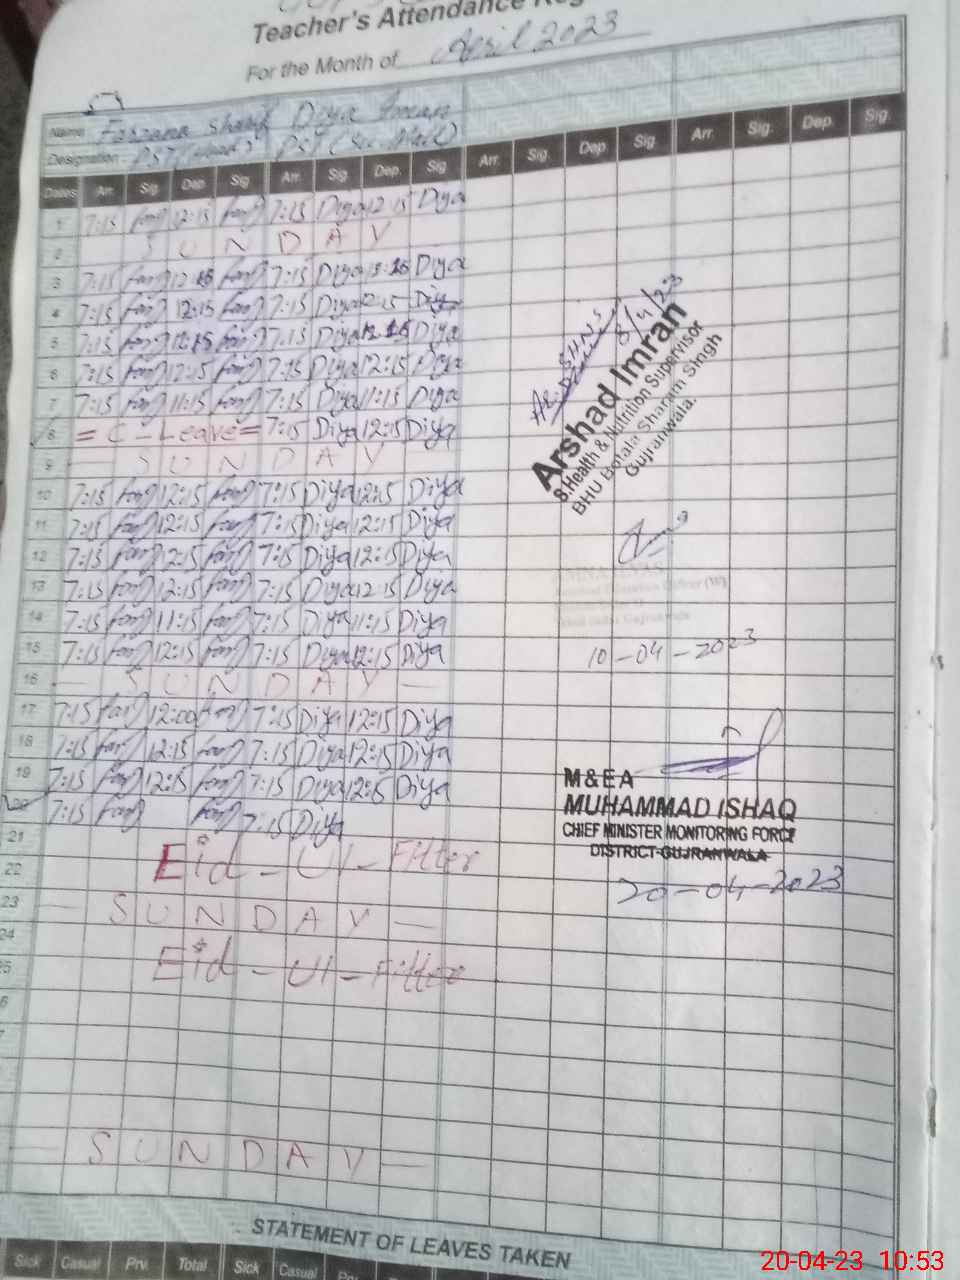 Teacher's Attendance Reg
For the Month of April 2023
Name Farzana Sharif Diya Iman
Designation PST PST
Dates Arr. Sig. Dep. Sig. Arr. Sig. Dep. Sig. Arr. Sig. Dep. Sig. Arr. Sig. Dep. Sig.
1 7:15 Farz 12:15 Farz 7:15 Diya 12:15 Diya
2 S U N D A Y
3 7:15 Farz 12:15 Farz 7:15 Diya Diya
4 7:15 Farz 12:15 Farz 7:15 Diya 12:15 Diya
5 7:15 Farz 12:15 Farz 7:15 Diya 12:15 Diya
6 7:15 Farz 12:15 Farz 7:15 Diya 12:15 Diya
7 7:15 Farz 11:15 Farz 7:15 Diya 11:15 Diya
8 = C - Leave = 7:15 Diya 12:15 Diya
9 — S U N D A Y —
10 7:15 Farz 12:15 Farz 7:15 Diya 12:15 Diya
11 7:15 Farz 12:15 Farz 7:15 Diya 12:15 Diya
12 7:15 Farz 12:15 Farz 7:15 Diya 12:15 Diya
13 7:15 Farz 12:15 Farz 7:15 Diya 12:15 Diya
14 7:15 Farz 11:15 Farz 7:15 Diya 11:15 Diya
15 7:15 Farz 12:15 Farz 7:15 Diya 12:15 Diya
16 — S U N D A Y —
17 7:15 Farz 12:00 Farz 7:15 Diya 12:15 Diya
18 7:15 Farz 12:15 Farz 7:15 Diya 12:15 Diya
19 7:15 Farz 12:15 Farz 7:15 Diya 12:15 Diya
20 7:15 Farz Farz 7:15 Diya
21
22 Eid - Ul - Fitter
23 — S U N D A Y —
24
25 Eid - Ul - Fitter
6
7
— S U N D A Y —
SHNS
8/4/23
Arshad Imran
S.Health & Nutrition Supervisor
BHU Botala Sharam Singh
Gujranwala.
10-04-2023
M & E A
MUHAMMAD ISHAQ
CHIEF MINISTER MONITORING FORCE
DISTRICT GUJRANWALA
20-04-2023
STATEMENT OF LEAVES TAKEN
Sick Casual Prv. Total Sick Casual
20-04-23 10:53